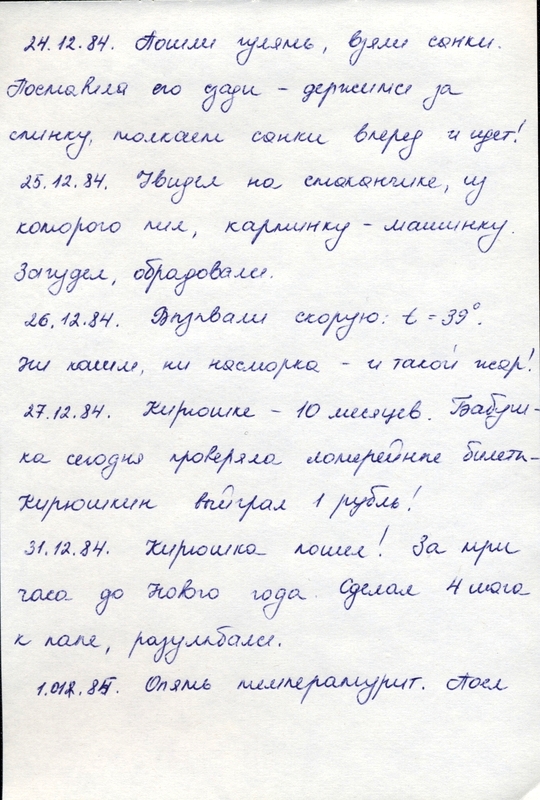 24.12.84. Пошли гулять, взяли санки.
Поставила его сзади – держится за
спинку, толкает санки вперед и идет!
25.12.84. Увидел на стаканчике, из
которого пил, картинку – машинку.
Загудел, обрадовался.
26.12.84. Вызывали скорую: t = 39°.
Ни кашля, ни насморка – и такой жар!
27.12.84. Кирюшке – 10 месяцев. Бабуш-
ка сегодня проверяла лотерейные билеты–
Кирюшкин выиграл 1 рубль!
31.12.84. Кирюшка пошел! За три
часа до Нового года. Сделал 4 шага
к папе, разулыбался.
1.01.85. Опять температурит. Посл